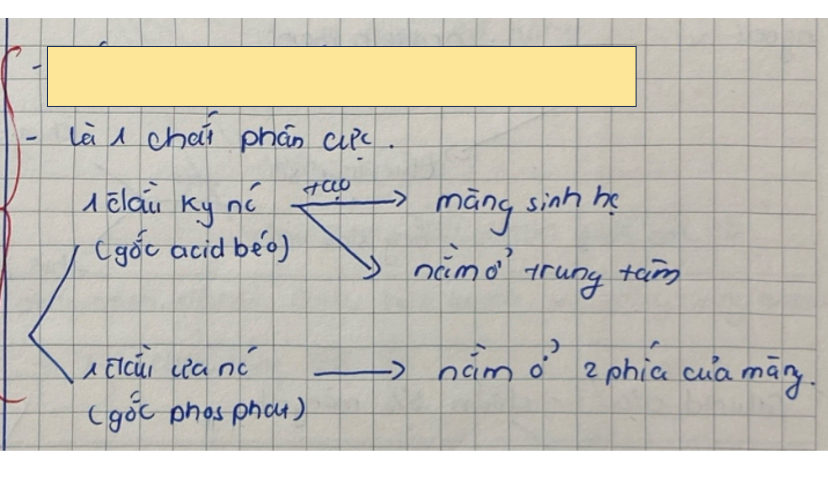 -
- là 1 chất phân cực.
1 đầu kỵ nc tạo → màng sinh hc
(gốc acid béo)
nằm ở trung tâm
1 đầu ưa nc → nằm ở 2 phía của màng.
(gốc phosphat)